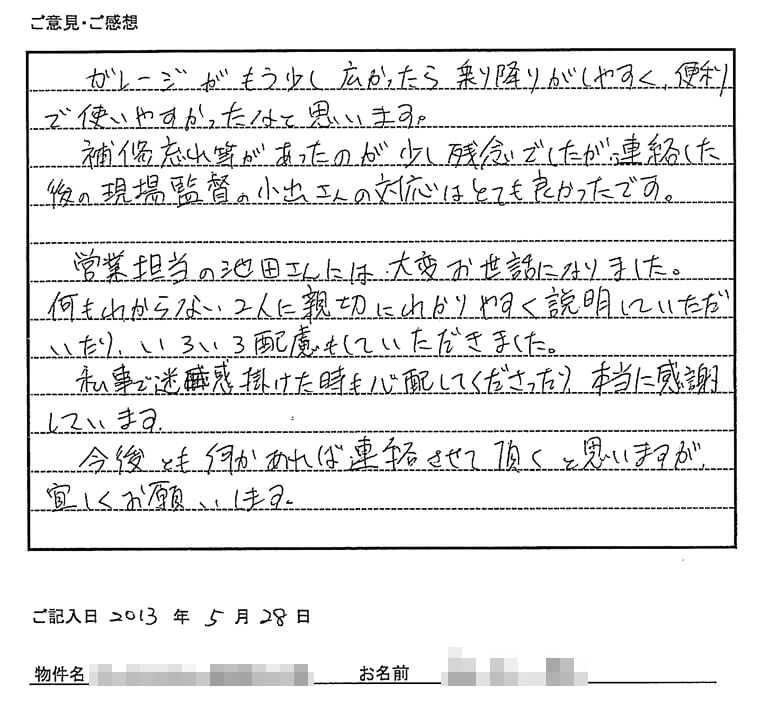 ご意見・ご感想
ガレージがもう少し広かったら乗り降りがしやすく、便利
で使いやすかったなと思います。
補修忘れ等があったのが少し残念でしたが、連絡した
後の現場監督の小出さんの対応はとても良かったです。
営業担当の池田さんには大変お世話になりました。
何もわからない2人に親切にわかりやすく説明していただ
いたり、いろいろ配慮もしていただきました。
私事で迷惑掛けた時も心配してくださったり、本当に感謝
しています。
今後とも何かあれば連絡させて頂くと思いますが、
宜しくお願いします。
ご記入日 2013 年 5 月 28 日
物件名 お名前